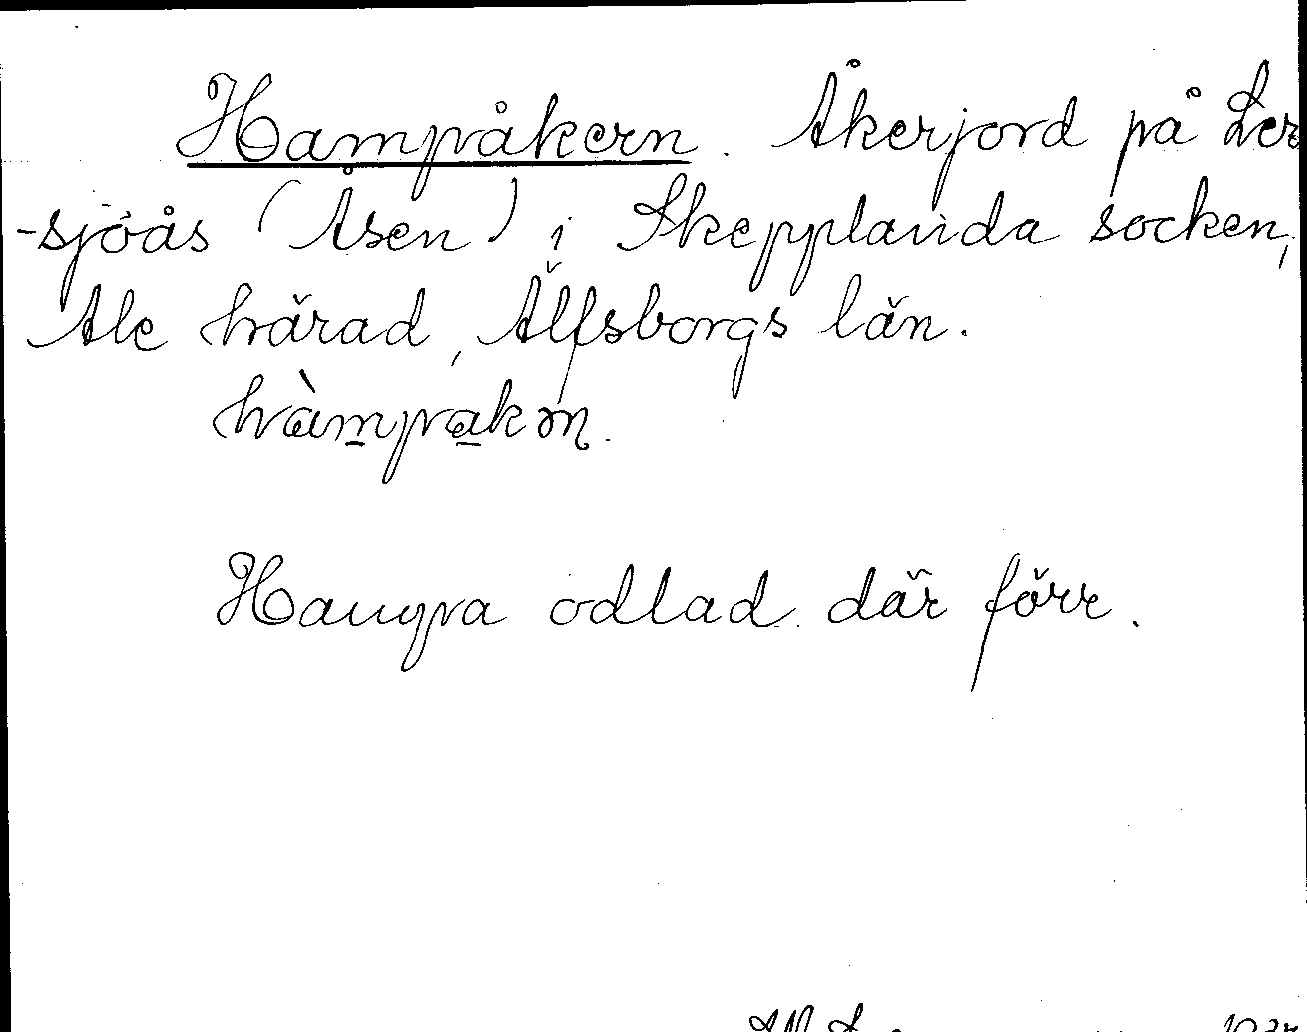 Hampåkern. Åkerjord på Ler
-sjöås (Åsen) i Skepplanda socken,
Ale härad, Älfsborgs län.
Hampa odlad där förr.